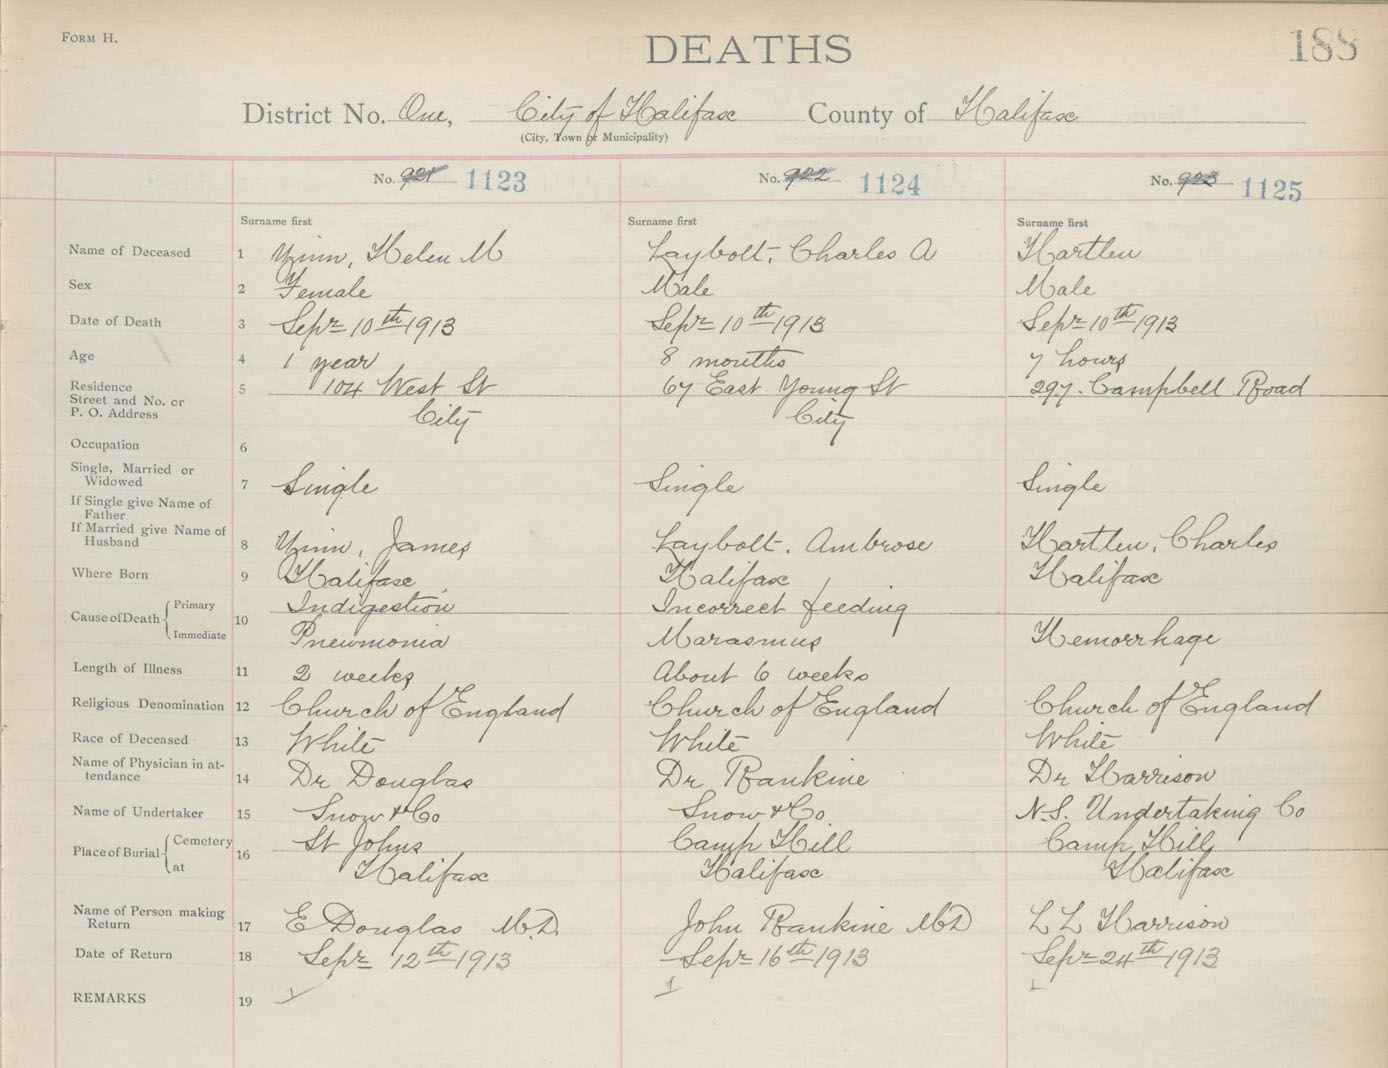 FORM H.
DEATHS
188
District No. One, City of Halifax County of Halifax
(City, Town or Municipality)
No. 921 1123 No. 922 1124 No. 923 1125
Surname first Surname first Surname first
Name of Deceased 1 Helen M Laybolt, Charles A Hartlen
Sex 2 Female Male Male
Date of Death 3 Sepr 10th 1913 Sepr 10th 1913 Sepr 10th 1913
Age 4 1 year 8 months 7 hours
Residence 5 104 West St 67 East Young St 297. Campbell Road
Street and No. or
P. O. Address City City
Occupation 6
Single, Married or
Widowed 7 Single Single Single
If Single give Name of
Father
If Married give Name of
Husband 8 James Laybolt. Ambrose Hartlen, Charles
Where Born 9 Halifax Halifax Halifax
Cause of Death 10 Primary Indigestion Incorrect feeding
Immediate Pneumonia Marasmus Hemorrhage
Length of Illness 11 2 weeks About 6 weeks
Religious Denomination 12 Church of England Church of England Church of England
Race of Deceased 13 White White White
Name of Physician in at-
tendance 14 Dr Douglas Dr Rankine Dr Harrison
Name of Undertaker 15 Snow & Co Snow & Co N.S. Undertaking Co
Place of Burial 16 Cemetery St Johns Camp Hill Camp Hill
at Halifax Halifax Halifax
Name of Person making
Return 17 E Douglas M.D. John Rankine MD L L Harrison
Date of Return 18 Sepr 12th 1913 Sepr 16th 1913 Sepr 24th 1913
REMARKS 19